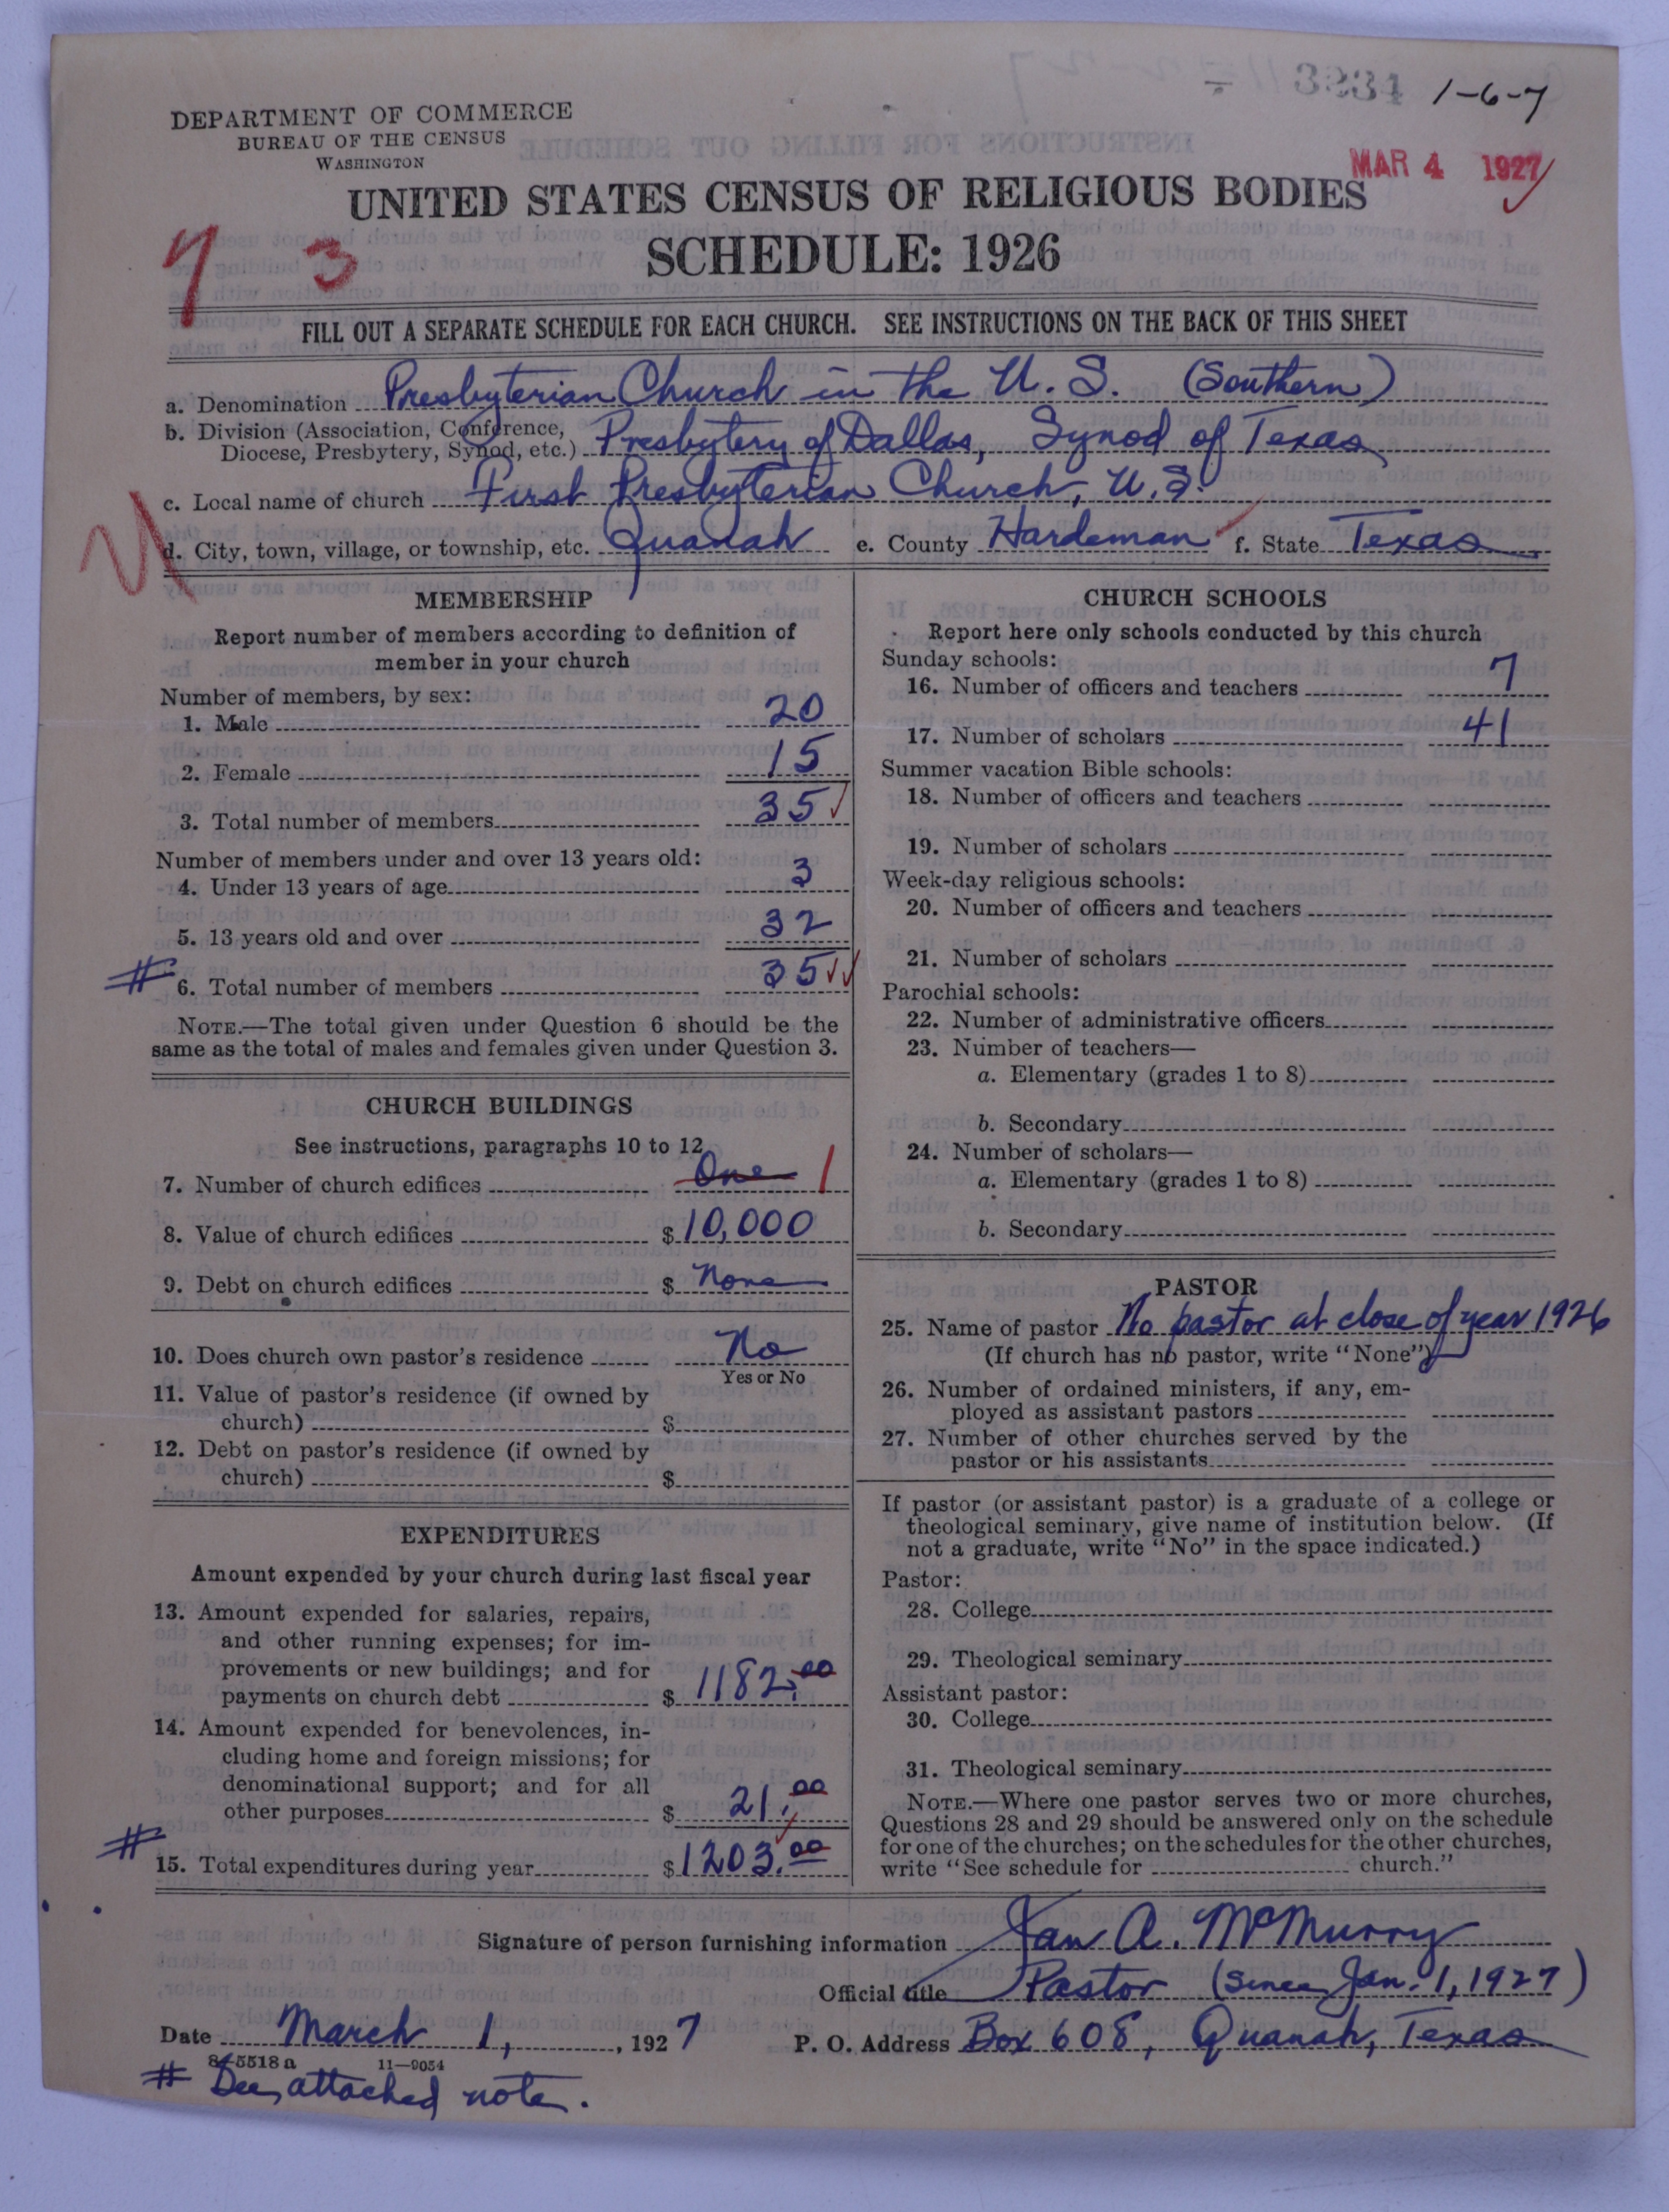 3231 1-6-7
DEPARTMENT OF COMMERCE
BUREAU OF THE CENSUS
WASHINGTON
MAR 4 1927
UNITED STATES CENSUS OF RELIGIOUS BODIES
SCHEDULE: 1926
3
FILL OUT A SEPARATE SCHEDULE FOR EACH CHURCH. SEE INSTRUCTIONS ON THE BACK OF THIS SHEET
a. Denomination Presbyterian Church in the U. S. (Southern)
b. Division (Association, Conference,
Diocese, Presbytery, Synod, etc.) Presbytery of Dallas, Synod of Texas
c. Local name of church First Presbyterian Church, U.S.
d. City, town, village, or township, etc. Quanah e. County Hardeman f. State Texas
MEMBERSHIP
Report number of members according to definition of
member in your church
Number of members, by sex:
1. Male 20
2. Female 15
3. Total number of members 35
Number of members under and over 13 years old:
4. Under 13 years of age 3
5. 13 years old and over 32
# 6. Total number of members 35
NOTE.—The total given under Question 6 should be the
same as the total of males and females given under Question 3.
CHURCH BUILDINGS
See instructions, paragraphs 10 to 12
7. Number of church edifices One 1
8. Value of church edifices $10,000
9. Debt on church edifices $ None
10. Does church own pastor's residence No
Yes or No
11. Value of pastor's residence (if owned by
church) $
12. Debt on pastor's residence (if owned by
church) $
EXPENDITURES
Amount expended by your church during last fiscal year
13. Amount expended for salaries, repairs,
and other running expenses; for im-
provements or new buildings; and for
payments on church debt $ 1182.00
14. Amount expended for benevolences, in-
cluding home and foreign missions; for
denominational support; and for all
other purposes $ 21.00
# 15. Total expenditures during year $1203.00
CHURCH SCHOOLS
Report here only schools conducted by this church
Sunday schools:
16. Number of officers and teachers 7
17. Number of scholars 41
Summer vacation Bible schools:
18. Number of officers and teachers
19. Number of scholars
Week-day religious schools:
20. Number of officers and teachers
21. Number of scholars
Parochial schools:
22. Number of administrative officers
23. Number of teachers—
a. Elementary (grades 1 to 8)
b. Secondary
24. Number of scholars—
a. Elementary (grades 1 to 8)
b. Secondary
PASTOR
25. Name of pastor No pastor at close of year 1926
(If church has no pastor, write "None")
26. Number of ordained ministers, if any, em-
ployed as assistant pastors
27. Number of other churches served by the
pastor or his assistants
If pastor (or assistant pastor) is a graduate of a college or
theological seminary, give name of institution below. (If
not a graduate, write "No" in the space indicated.)
Pastor:
28. College
29. Theological seminary
Assistant pastor:
30. College
31. Theological seminary
NOTE.—Where one pastor serves two or more churches,
Questions 28 and 29 should be answered only on the schedule
for one of the churches; on the schedules for the other churches,
write "See schedule for church."
Signature of person furnishing information Jas A. McMurry
Official title Pastor (Since Jan. 1, 1927)
Date March 1, 1927 P. O. Address Box 608, Quanah, Texas
8-5518 a 11-9054
# See attached note.